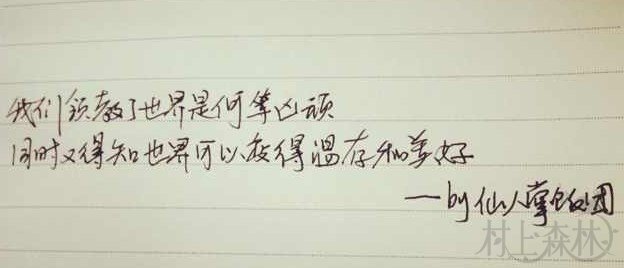 我们领教了世界是何等凶顽
同时又得知世界可以变得温存和美好
—by仙人掌饭团
村上森林